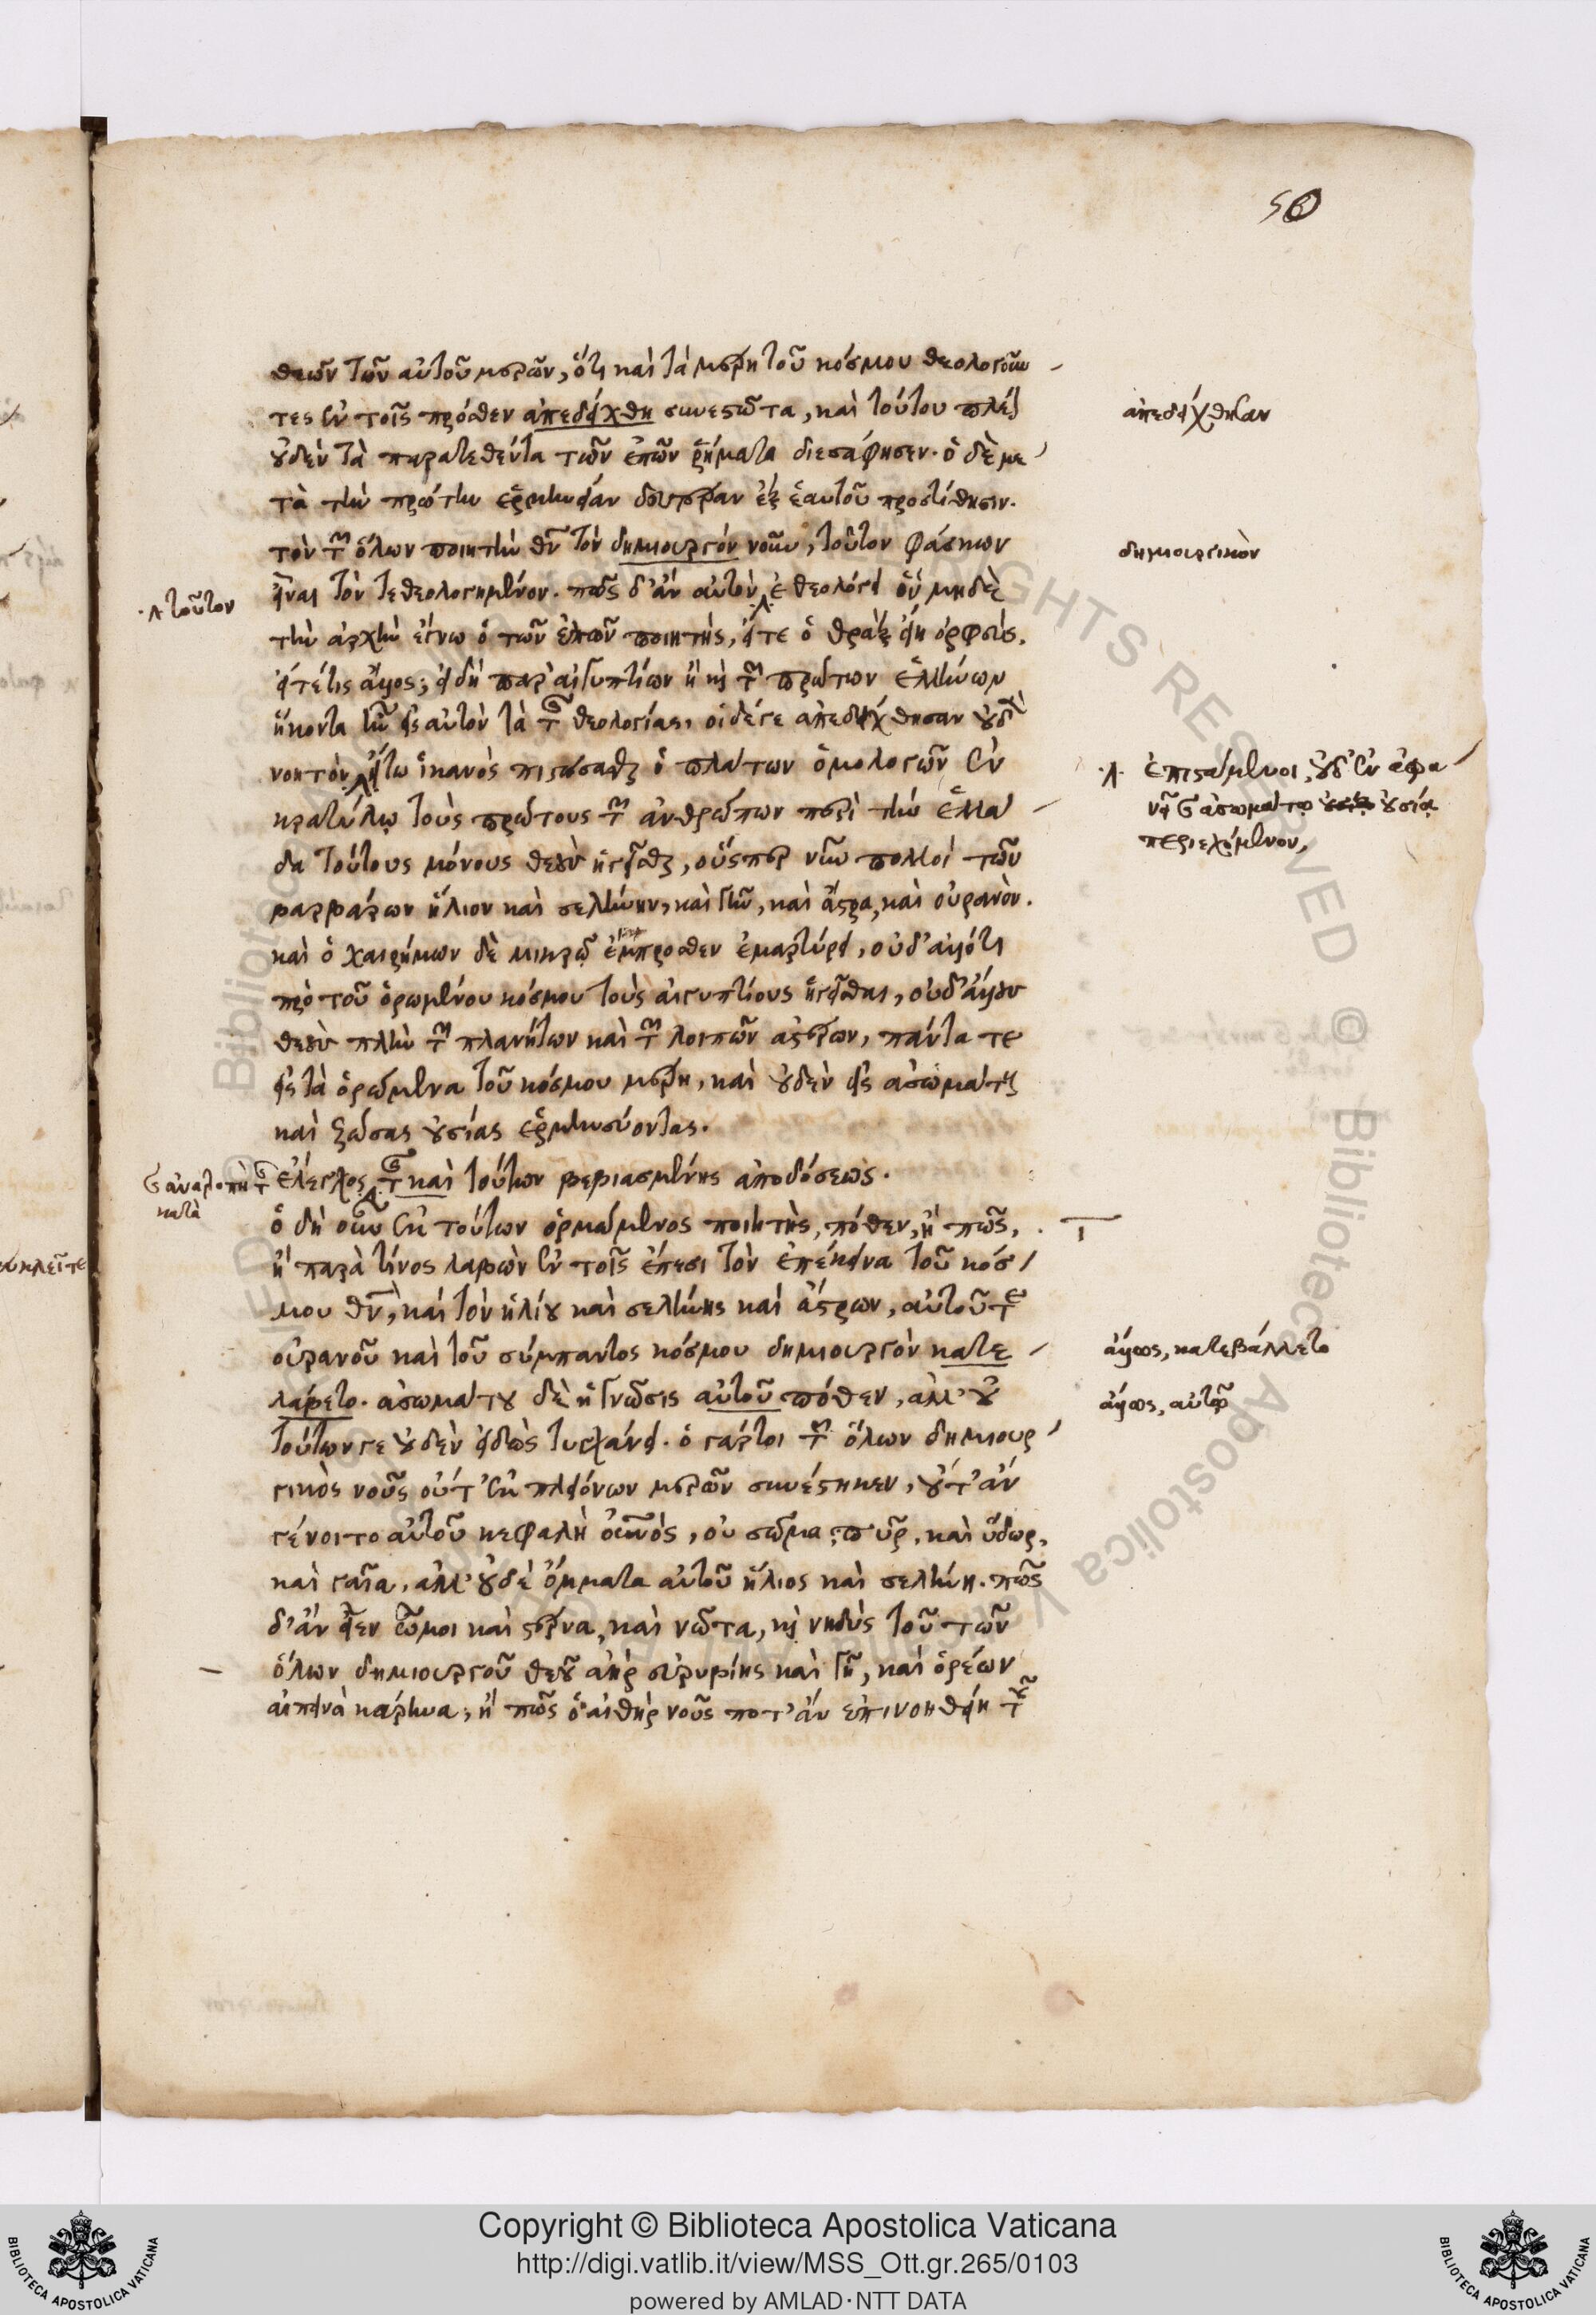 50
θειῶν τῶν αὐτοῦ μερῶν, ὅτι καὶ τὰ μέρη τοῦ κόσμου θεολογοῦν
τες ἐν τοῖς πρόσθεν ἀπεδείχθη συνεστῶτα, καὶ τούτου πλέον
οὐδὲν τὰ παρατεθέντα τῶν ἐπῶν ῥήματα διεσάφησεν. ὁ δὲ με
τὰ τὴν πρώτην ἑρμηνείαν δευτέραν ἐξ ἑαυτοῦ προστίθησιν.
τὸν τῶν ὅλων ποιητὴν θεὸν τὸν δημιουργόν νοῦν, τοῦτον φάσκων
εἶναι τὸν τεθεολογημένον. πῶς δ' ἂν αὐτὸν ἐθεολόγει ὃν μηδὲ
τὴν ἀρχὴν ἔγνω ὁ τῶν ἐπῶν ποιητής, εἴτε ὁ θρᾲξ εἴη ὀρφεύς.
εἴτε τις ἄλλος; εἰ δὴ παρ' αἰγυπτίων ἢ καὶ τῶν πρώτων ἑλλήνων
ἥκοντα ἦν εἰς αὐτὸν τὰ τῆς θεολογίας, οἱ δέ γε ἀπεδείχθησαν οὐδὲν
νοητὸν ἤτω ἱκανὸς πιστώσασθαι ὁ πλάτων ὁμολογῶν ἐν
κρατύλῳ τοὺς πρώτους τῶν ἀνθρώπων περὶ τὴν ἑλλά
δα τούτους μόνους θεοὺς ἡγεῖσθαι, οὕσπερ νῦν πολλοὶ τῶν
βαρβάρων ἥλιον καὶ σελήνην, καὶ γῆν, καὶ ἄστρα, καὶ οὐρανὸν.
καὶ ὁ χαιρήμων δὲ μικρῷ ἔμπροσθεν ἐμαρτύρει, οὐδ' ἄλλό τι
πρὸ τοῦ ὁρωμένου κόσμου τοὺς αἰγυπτίους ἡγεῖσθαι, οὐδ' ἄλλους
θεοὺς πλὴν τῶν πλανήτων καὶ τῶν λοιπῶν ἀστέρων, πάντα τε
εἰς τὰ ὁρώμενα τοῦ κόσμου μέρη, καὶ οὐδὲν εἰς ἀσωμάτους
καὶ ζώσας οὐσίας ἑρμηνεύοντας.
ἔλεγχος τῆς καὶ τούτων βεβιασμένης ἀποδόσεως.
ὁ δὴ οὖν ἐκ τούτων ὁρμώμενος ποιητὴς, πόθεν, ἢ πῶς,
ἢ παρὰ τίνος λαβὼν ἐν τοῖς ἔπεσι τὸν ἐπέκεινα τοῦ κόσ
μου θεὸν, καὶ τὸν ἡλίου καὶ σελήνης καὶ ἄστρων, αὐτοῦ τε
οὐρανοῦ καὶ τοῦ σύμπαντος κόσμου δημιουργὸν κατε
λάβετο. ἀσωμάτου δὲ ἡ γνῶσις αὐτοῦ πόθεν, ἀλλ' οὐ
τούτων γε οὐδὲν εἰδὼς τυγχάνει. ὁ γάρ τοι τῶν ὅλων δημιουρ
γικὸς νοῦς οὔτ' ἐκ πλειόνων μερῶν συνέστηκεν, οὔτ' ἂν
γένοιτο αὐτοῦ κεφαλὴ οὐρανός, οὐ σῶμα, πῦρ, καὶ ὕδωρ,
καὶ γαῖα, ἀλλ' οὐδὲ ὄμματα αὐτοῦ ἥλιος καὶ σελήνη. πῶς
δ' ἂν εἶεν ὦμοι καὶ στέρνα, καὶ νῶτα, καὶ νηδὺς τοῦ τῶν
ὅλων δημιουργοῦ θεοῦ ἀὴρ εὐρυβίης καὶ γῆ, καὶ ὀρέων
αἰπεινὰ κάρηνα; ἢ πῶς ὁ αἰθὴρ νοῦς ποτ' ἂν ἐπινοηθείη τοῦ
ἀπεδείχθησαν
δημιουργικὸν
τοῦτον
ἐπιστάμενοι, οὐδ' ἐν ἀφα
νεῖ καὶ ἀσωμάτῳ οὐσίᾳ
περιεχόμενον,
καὶ ἀνατροπὴ τῆς
κατὰ
ἄλλως, κατεβάλλετο
ἄλλως, αὐτῷ
Copyright © Biblioteca Apostolica Vaticana
http://digi.vatlib.it/view/MSS_Ott.gr.265/0103
powered by AMLAD·NTT DATA
BIBLIOTECA APOSTOLICA VATICANA
BIBLIOTECA APOSTOLICA VATICANA